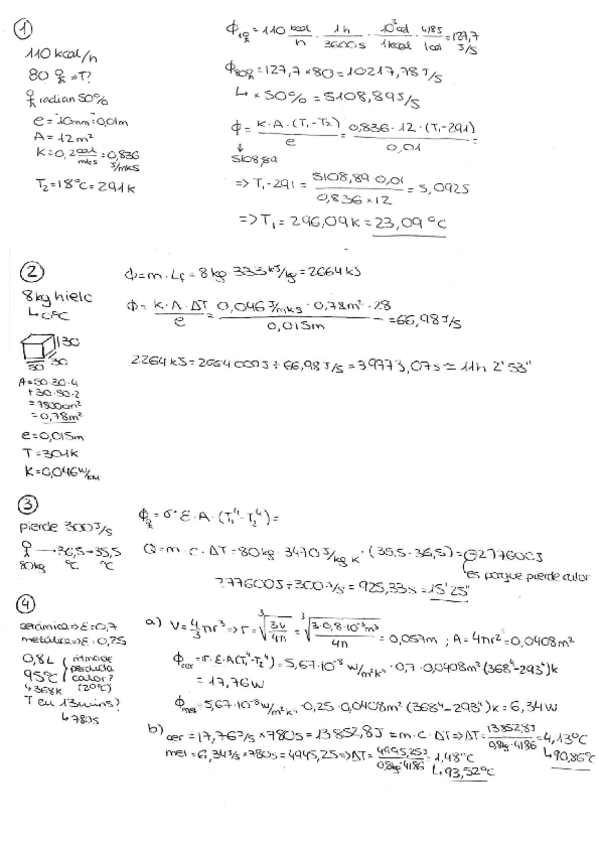 ①
110 kcal/h
80 ♀ → T?
♀ radian 50%
e = 10mm = 0,01m
A = 12 m²
K = 0,2 cal/mks = 0,836 J/mks
T₂ = 18°C = 291 k
Φ1♀ = 110 kcal/h · 1h/3600s · 10³ cal/1kcal · 4,18J/1cal = 127,7 J/s
Φ80♀ = 127,7 × 80 = 10217,78 J/s
↳ × 50% = 5108,89 J/s
Φ = K·A·(T₁-T₂)/e = 0,836 · 12 · (T₁-291)/0,01 =
↓
5108,89
=> T₁-291 = 5108,89 · 0,01/0,836 × 12 = 5,0925
=> T₁ = 296,09 k = 23,09 °C
②
8kg hielo
↳ 0°C
130
50 30
A = 50·30·4
+ 30·30·2
= 7800cm²
= 0,78m²
e = 0,015m
T = 301k
K = 0,046 W/km
Φ = m · Lf = 8 kg · 333 kJ/kg = 2664 kJ
Φ = K·A·ΔT/e = 0,046 J/mks · 0,78m² · 28/0,015m = 66,98 J/s
2264 kJ = 2664000J ÷ 66,98 J/s = 39773,07s ≃ 11h 2' 53"
③
pierde 300 J/s
♀ → 36,5 → 35,5
80kg °C °C
Φ♀ = σ · ε · A · (T₁⁴ - T₂⁴) =
Q = m · c · ΔT = 80kg · 3470 J/kg k · (35,5 - 36,5) = -277600J
↳ es porque pierde calor
277600J ÷ 300 J/s = 925,33s = 15' 25"
④
cerámica => ε = 0,7
metálica => ε = 0,25
0,8L
95°C
↳ 368k
ritmo de
perdida
calor?
(20°C)
T en 13 mins?
↳ 780s
a) V = 4/3 πr³ => r = ∛(3V/4π) = ∛(3·0,8·10⁻³m³/4π) = 0,057m ; A = 4πr² = 0,0408m²
Φcer = σ·ε·A(T₁⁴-T₂⁴) = 5,67·10⁻⁸ W/m²k⁴ · 0,7 · 0,0408m² (368⁴-293⁴)k
= 17,76 W
Φmet = 5,67·10⁻⁸ W/m²k⁴ · 0,25 · 0,0408m² (368⁴-293⁴)k = 6,34 W
b) cer = 17,76 J/s × 780s = 13852,8J = m·c·ΔT => ΔT = 13852,8J/0,8kg·4186 = 4,13°C
↳ 90,86°C
met = 6,34 J/s × 780s = 4945,25 => ΔT = 4945,25J/0,8kg·4186 = 1,48°C
↳ 93,52°C